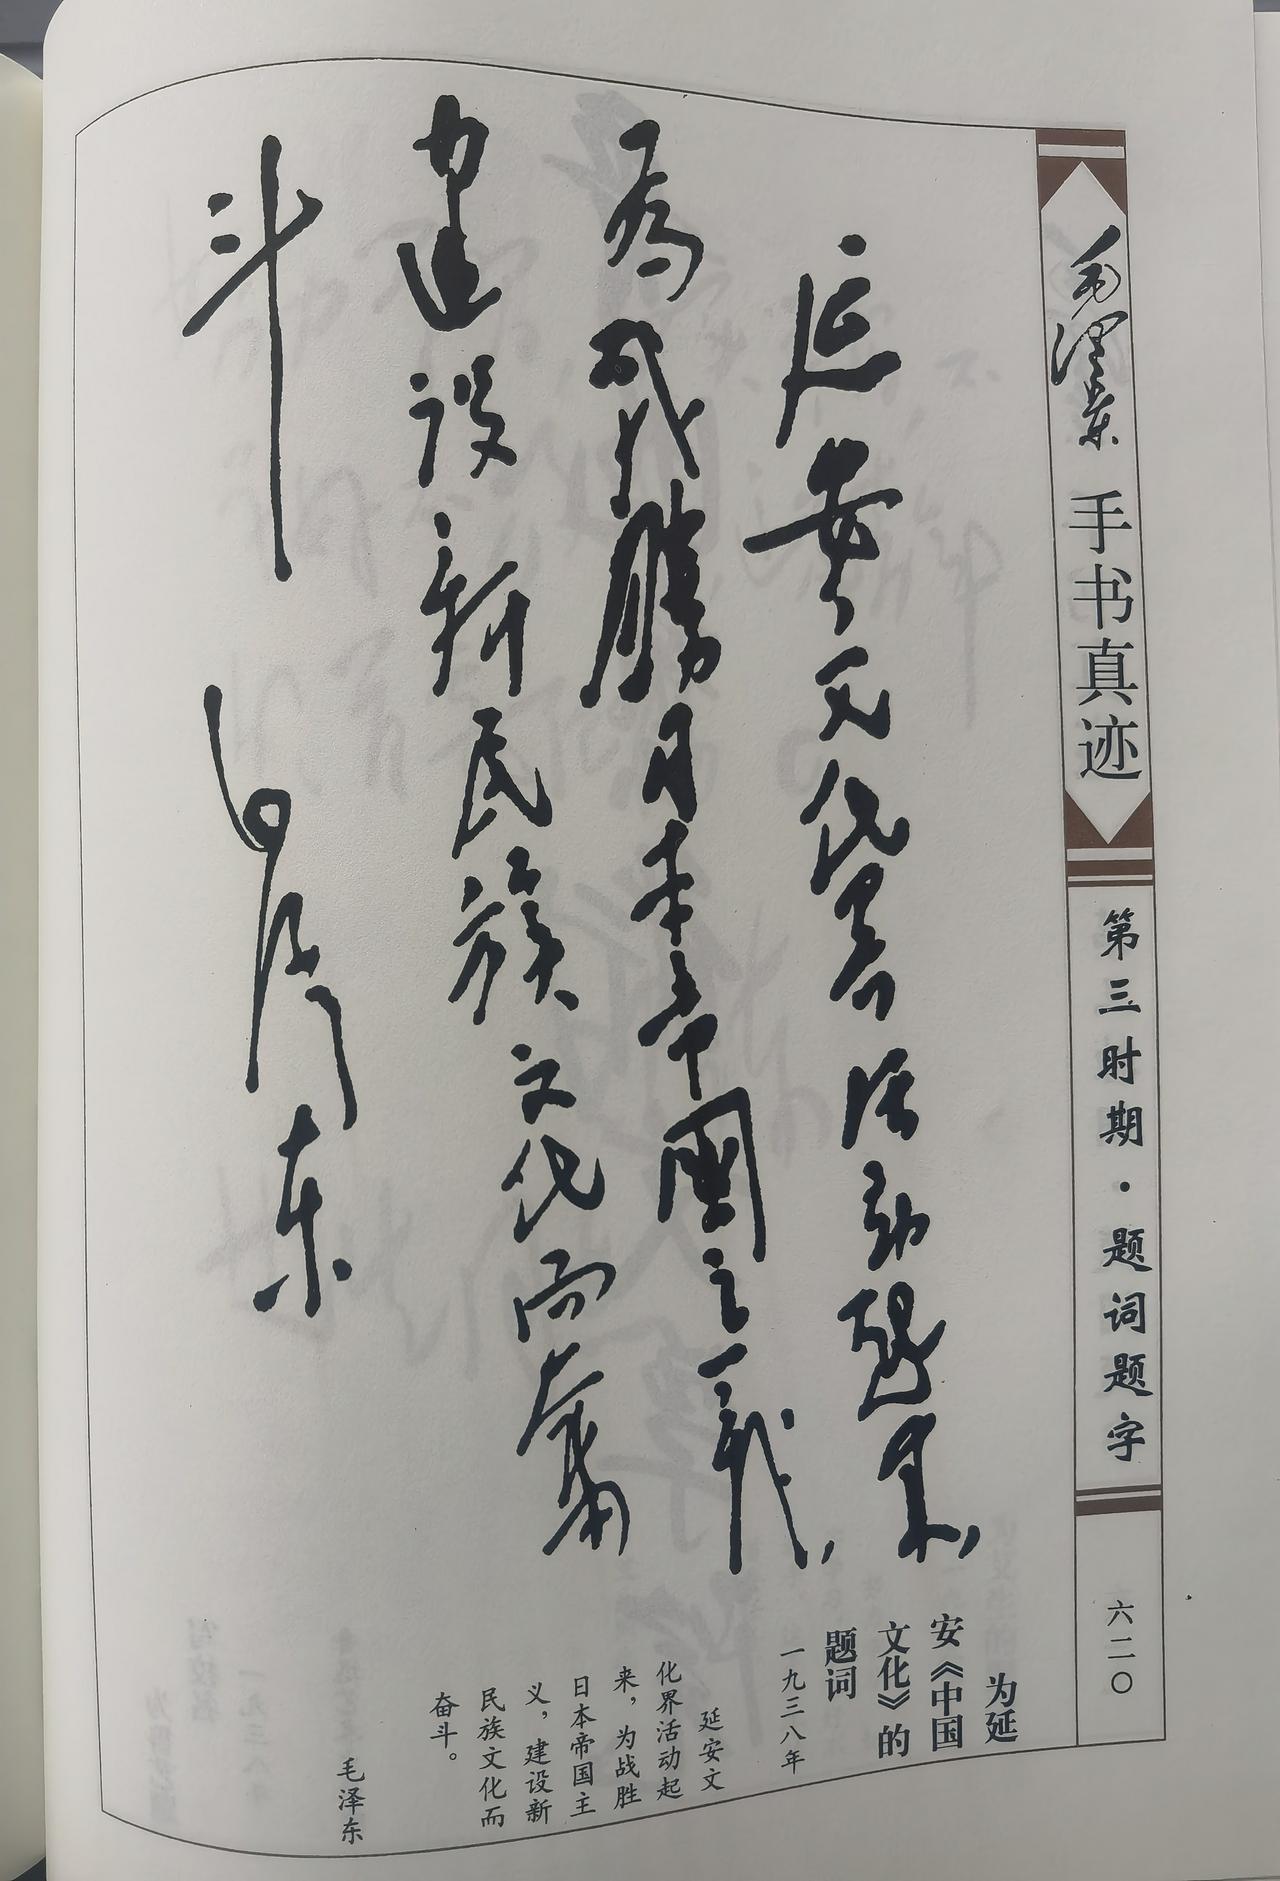 毛泽东
手书真迹
第三时期·题词题字
六二〇
延安文化界活动起来，
為战勝日本帝國主義，
建设新民族文化而奮
斗
毛泽东
为延
安《中国
文化》的
题词
一九三八年
延安文
化界活动起
来，为战胜
日本帝国主
义，建设新
民族文化而
奋斗。
毛泽东